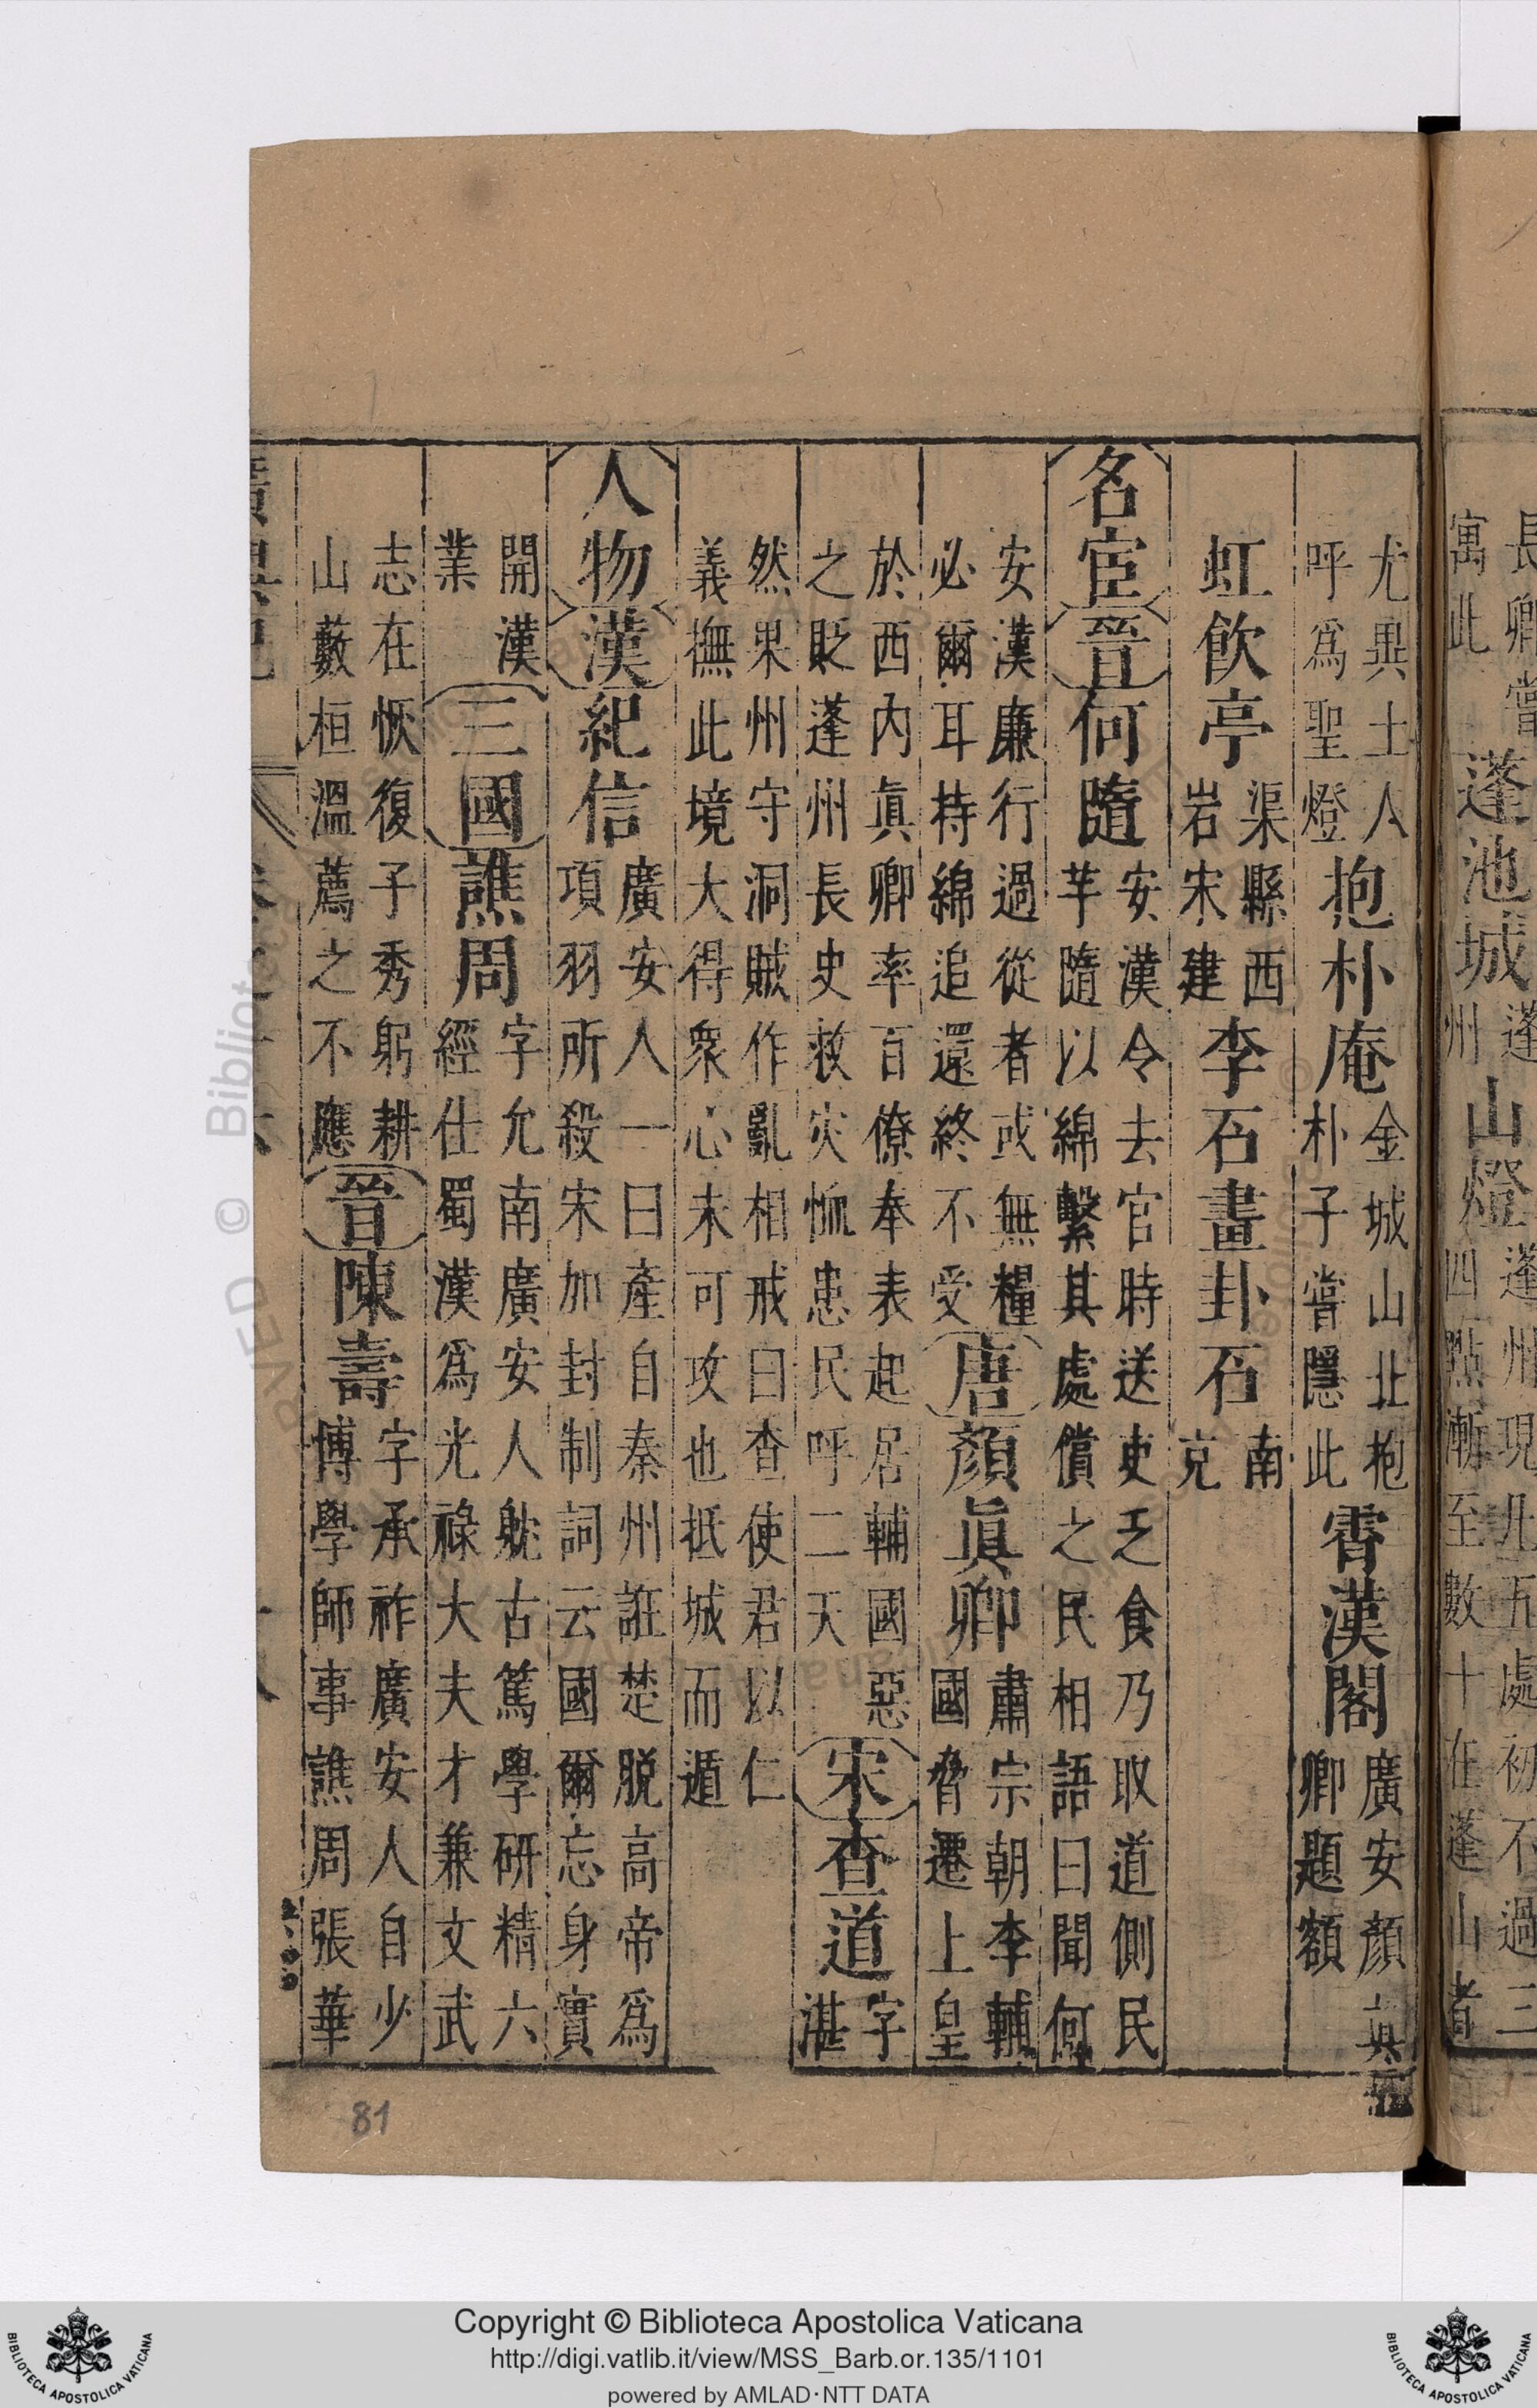 長卿嘗
寓此
蓬池城
蓬
州
山燈
蓬州現凡五處初不過三
四點漸至數十在蓬山者
尤異土人
呼爲聖燈
抱朴庵
金城山北抱
朴子嘗隱此
霄漢閣
廣安顏真
卿題額
虹飲亭
渠縣西
岩宋建
李石畫卦石
南
克
名宦
晉
何隨
安漢令去官時送吏乏食乃取道側民
芋隨以綿繫其處償之民相語曰聞何
安漢廉行過從者或無糧
必爾耳持綿追還終不受
唐
顏眞卿
肅宗朝李輔
國脅遷上皇
於西内眞卿率百僚奉表起居輔國惡
之貶蓬州長史救災恤患民呼二天
宋
查道
字
湛
然果州守洞賊作亂相戒曰查使君以仁
義撫此境大得衆心未可攻也抵城而遁
人物
漢
紀信
廣安人一曰產自秦州誑楚脫高帝爲
項羽所殺宋加封制詞云國爾忘身實
開漢
業
三國
譙周
字允南廣安人躭古篤學研精六
經仕蜀漢爲光祿大夫才兼文武
志在恢復子秀躬耕
山藪桓溫薦之不應
晉
陳壽
字承祚廣安人自少
博學師事譙周張華
81
Copyright © Biblioteca Apostolica Vaticana
http://digi.vatlib.it/view/MSS_Barb.or.135/1101
powered by AMLAD·NTT DATA
BIBLIOTECA APOSTOLICA VATICANA
BIBLIOTECA APOSTOLICA VATICANA